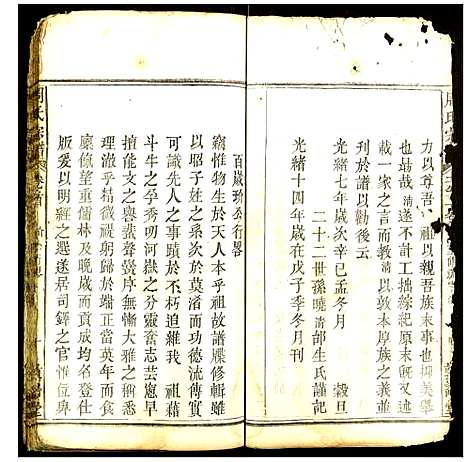 力以尊吾
祖以親吾族末事也抑美舉
也哉清遂不計工拙緣紀原末旣又
載一家之言而教清以敦本厚族之義並
刊於譜以勸後云
光緒七年歲次辛巳孟冬月 穀旦
二十二世孫曉清邰生氏謹記
光緒十四年歲在戊子季冬月刊
百歲玠公行畧
竊惟物生於天人本乎祖故譜牒修輯雖
以昭子姓之系次於莫淆而功德流傳實
可識先人之事蹟於不朽追維我 祖藉
斗牛之孕秀叨河嶽之分靈奮志芸窻早
擅能文之譽蜚聲黌序無慚大雅之稱然而
理澈乎精微視躬歸於端正當其
廩餼望重儒林及晚歲而貢成均名登仕
版爰以明經之選遂居司鐸之官惟位卑